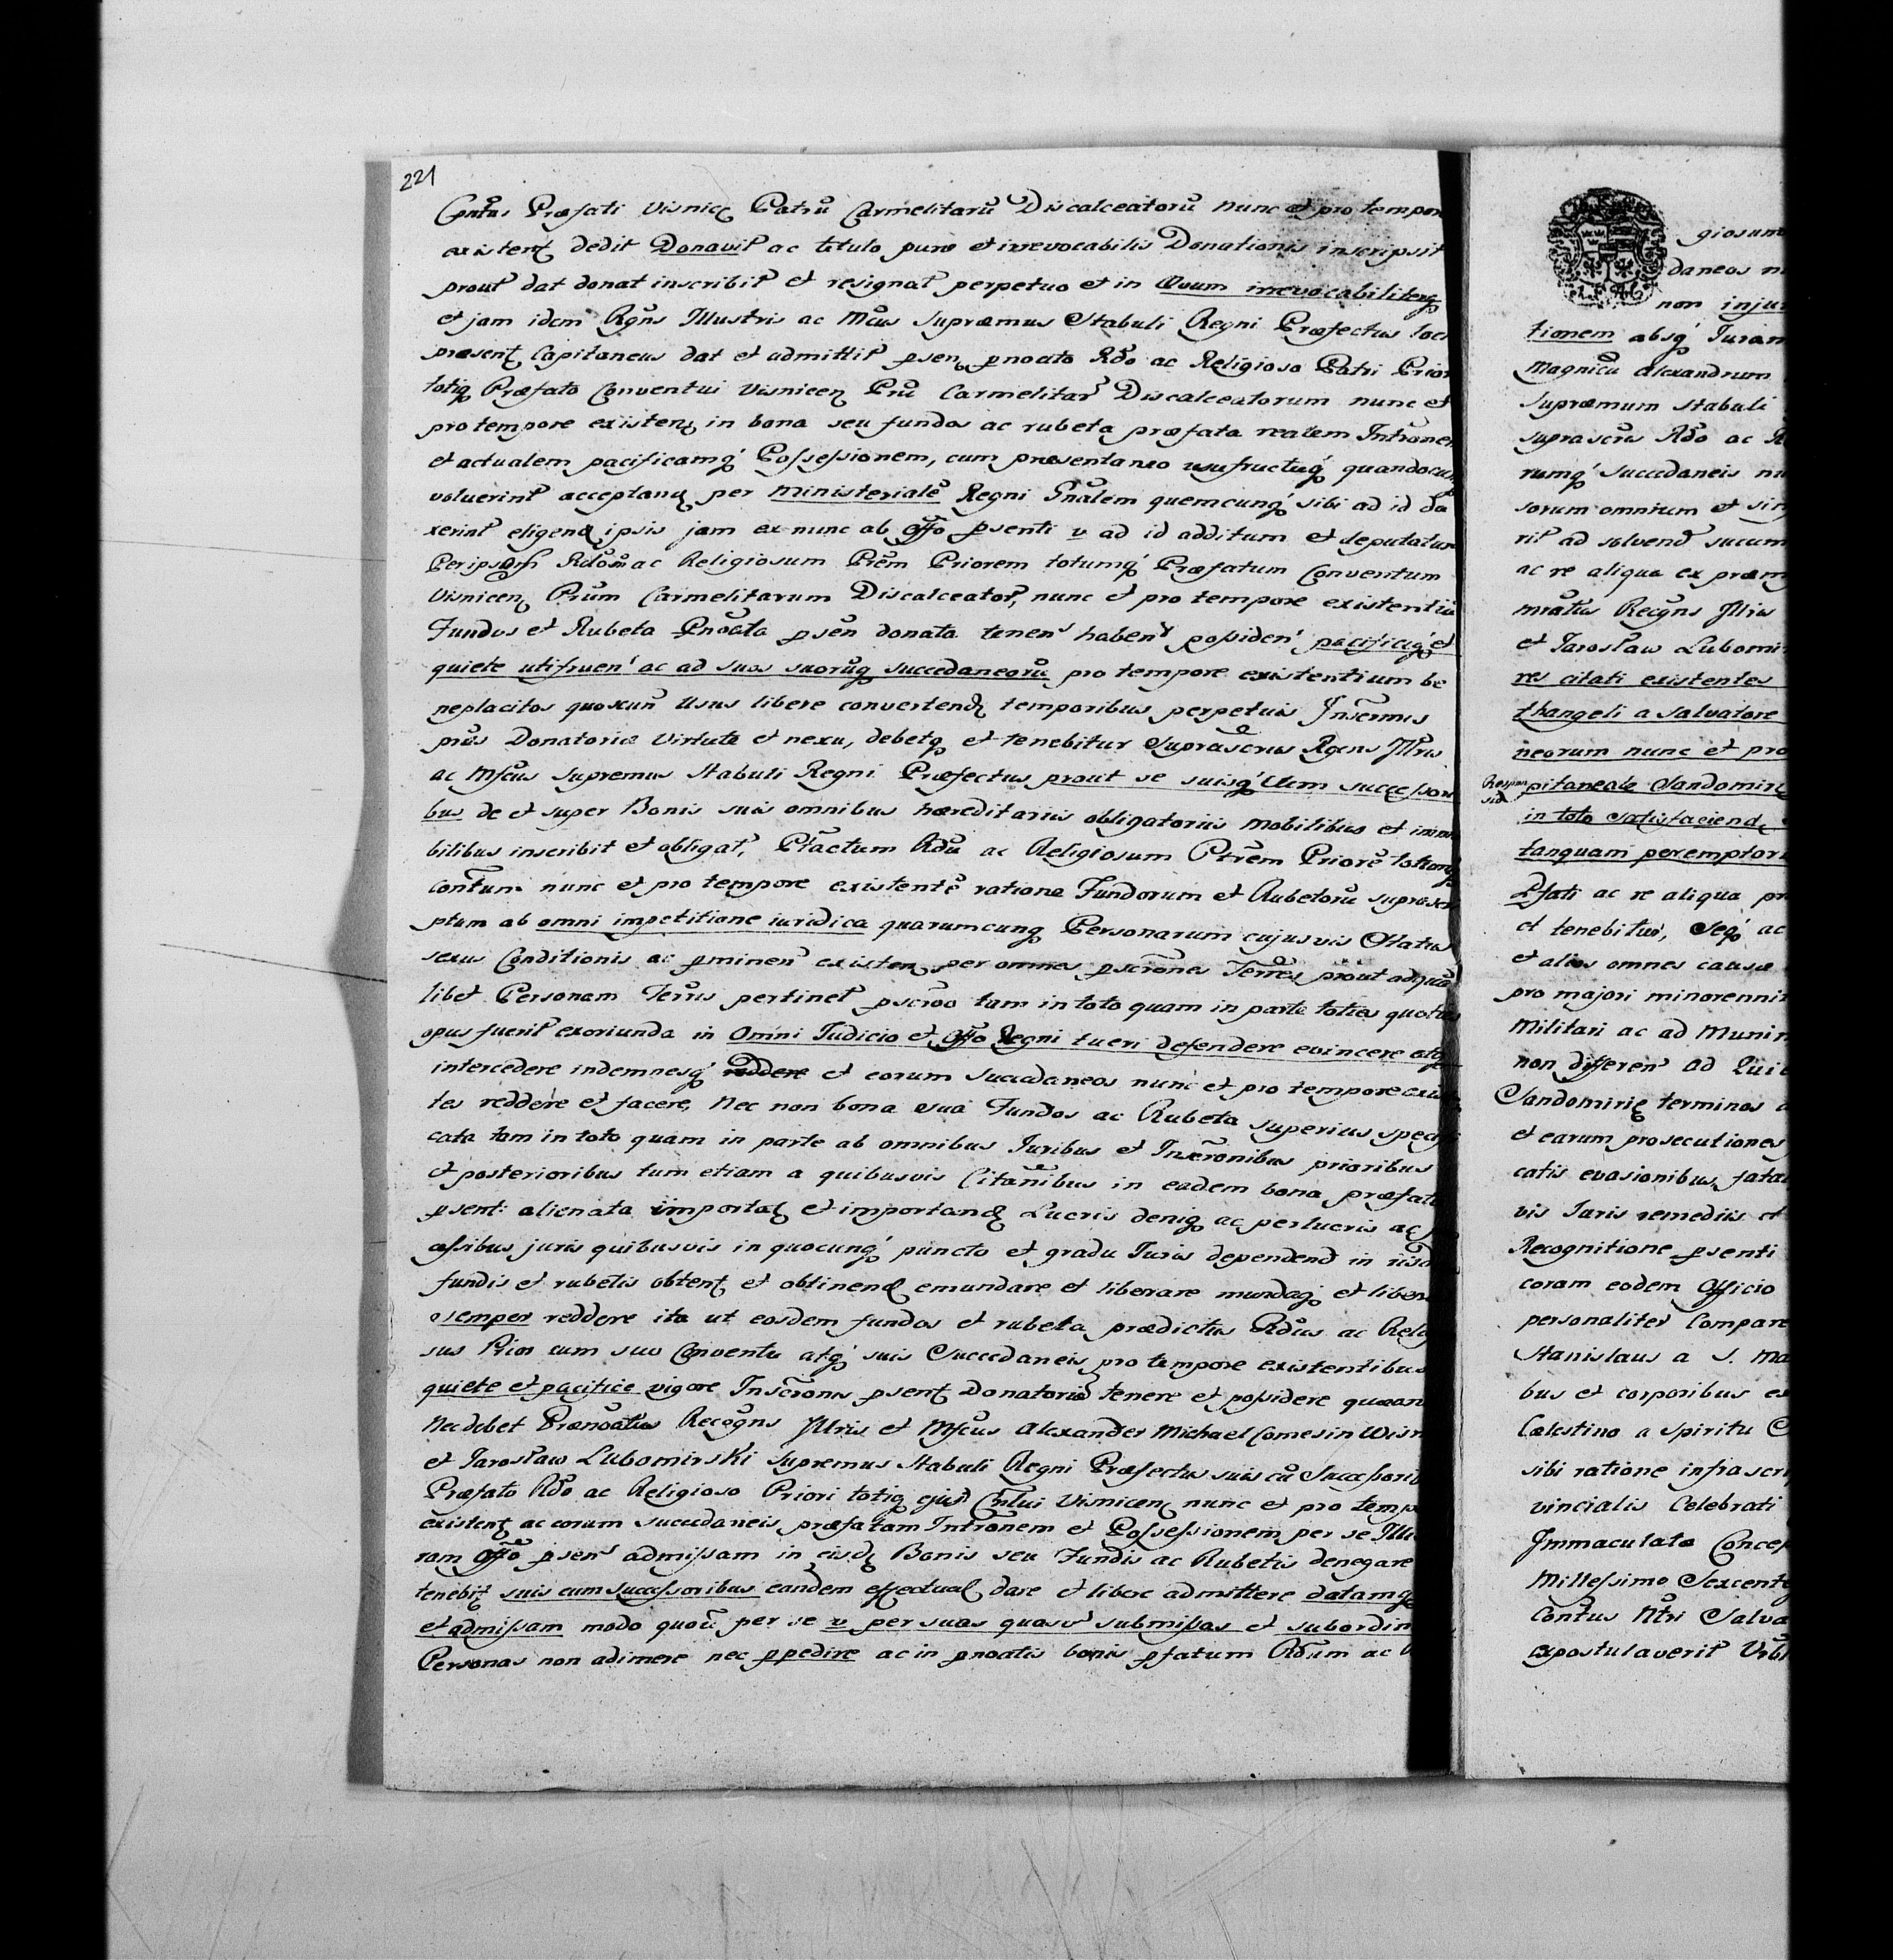 221
Cpntus Præfati Visnicę Patrū Carmelitarū Discalceatorū nunc et pro tempore
existenę dedit Donavit ac titulo puræ et irrevocabilis Donationis inscripsit
prout dat donat inscribit et resignat perpetuo et in ævum irrevocabiliterq
et jam idem Rgns Illustris ac Mcus Supræmus Stabuli Regni Præfectus loci
præsenę Capitaneus dat et admittit psen pnoato Rdo ac Religioso Patri Priori
totiq Præfato Conventui Visnicen Prū Carmelitar Discalceatorum nunc et
pro tempore existenę in bona seu fundos ac rubeta præfata realem Intronem
et actualem pacificamq Possessionem, cum præsentaneo usufructuq quandocunq
voluerint acceptanę per Ministerialē Regni Gnalem quemcunq sibi ad id du
xerint eligenę ipsis jam ex nunc ab Offo psenti v ad id additum et deputatum
Per ipsum Rdom ac Religiosum Prem Priorem totumq Præfatum Conventum
Visnicen Prum Carmelitarum Discalceator, nunc et pro tempore existentiū
Fundos et Rubeta Pnoata psen donata tenen haben possiden pacificeq et
quiete utifruen ac ad suos suorūq succedaneorū pro tempore existentium be
neplacitos quoscun Usus libere convertendę temporibus perpetuis Insermis
pris Donatoriæ Virtute et nexu, debetq et tenebitur Suprascrus Rgns Illris
ac Mfcus Supremus Stabuli Regni Præfectus prout se suisq cum successori
bus de et super Bonis suis omnibus hæreditariis obligatoriis mobilibus et immo
bilibus inscribit et obligat, Pfactum Rdu ac Religiosum Ptrem Priorē totumq
contum nunc et pro tempore existentē ratione Fundorum et Rubetorū suprascri
ptum ab omni impetitione iuridica quarumcunq Personarum cujusvis Status
sexus Conditionis ac pminen existen per omnes pscrones Terres prout ad quā
libet Personam Terris pertinet pscroo tam in toto quam in parte toties quoties
opus fuerit exoriunda in Omni Judicio et Offo Regni tueri defendere evincere atq
intercedere indemnesq reddere et eorum succedaneos nunc et pro tempore existen
tes reddere et facere, Nec non bona sua Fundos ac Rubeta superius specifi
cata tam in toto quam in parte ab omnibus Juribus et Inscronibus prioribus
et posterioribus tum etiam a quibusvis Citanibus in eadem bona præfata
psent: alienata importaę et importandę Lucris deniq ac perlucris ac
assibus juris quibusvis in quocunq puncto et gradu Juris dependend in iisd
fundis et rubetis obtenę et obtinendę emundare et liberare mundaq et libera
semper reddere ita ut eosdem fundos et rubeta prædictus Rdus ac Religio
sus Prior cum suo Conventu atq suis Succedaneis pro tempore existentibus
quiete et pacifice vigore Inscronis psenę Donatoriæ tenere et possidere queant
Nec debet Prænoatus Recogns Illris et Mfcus Alexander Michael Comes in Wisn
et Jarosław Lubomirski Supremus Stabuli Regni Præfectus suis cū Successorib
Præfato Rdo ac Religioso Priori totiq ejusd Cntui Visnicen nunc et pro temp
existenę ac eorum succedaneis præfatam Intronem et Possessionem per se Illu
ram Offo psen admissam in eisdę Bonis seu Fundis ac Rubetis denegare
tenebit suis cum successoribus eandem effectual dare et libere admittere datamq
et admissam modo quovis per se v per suas quasvis submissas et subordin
Personas non adimere nec ppedire ac in pnoatis bonis pfatum Rdum ac
giosum
daneos n
non injur
tionem absq Juram
Magnicū Alexandrum
Supræmum Stabuli
suprascris Rdo ac R
rumq succedaneis nu
sorum omnium et sing
rit ad solvend sucum
ac re aliqua ex præm
miatus Recgns Illris
et Jarosław Lubomi
res citati existentes
thangeli a Salvatore
neorum nunc et pro
pitaneale Sandomirię
in toto satisfaciendę
tanquam peremptori
Pfati ac re aliqua pr
et tenebitur, Seq ac
et alios omnes causæ
pro majori minorennit
Militari ac ad Munin
non differen ad Quit
Sandomirię terminos
et earum prosecutiones
catis evasionibus, fatal
vis Juris remediis et
Recognitione psenti
coram eodem Officio
personaliter Compare
Stanislaus a S. Ma
bus et corporibus ex
Cælestino a Spiritu S
sibi ratione infrascri
vincialis Celebrati
Immaculata Concep
Millessimo Sexcente
Contus Ntri Salva
expostulaverit Urbi